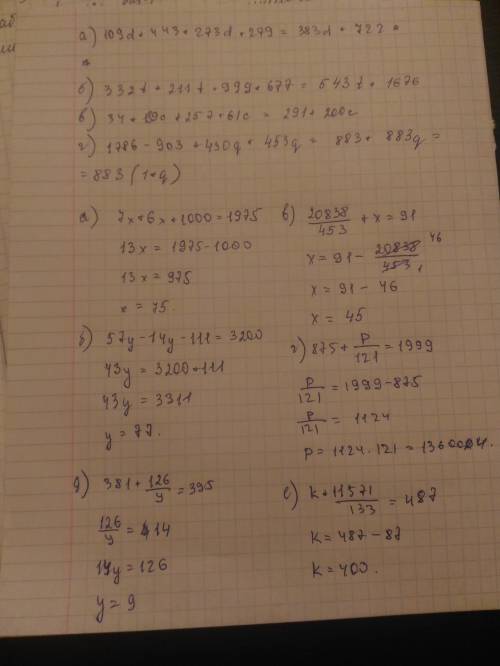 а) 109d + 443 + 273d + 279 = 383d + 722 +
б) 332t + 211t + 999 + 677 = 543t + 1676
в) 34 + + 257 + 61c = 291 + 200c
г) 1786 - 903 + 430g + 453g = 883 + 883g =
= 883 (1+g)
а) 7x+6x+1000=1975
13x = 1975-1000
13x = 975
x = 75.
б) 57y-14y-111=3200
43y = 3200+111
43y = 3311
y = 77.
в) 20838/453 + x = 91
x = 91 - 20838/453 46
x = 91 - 46
x = 45
г) 875 + p/121 = 1999
p/121 = 1999-875
p/121 = 1124
p = 1124 · 121 = 136004.
д) 381 + 126/y = 395
126/y = 14
14y = 126
y = 9
е) k + 11571/133 = 487
k = 487 - 87
k = 400.